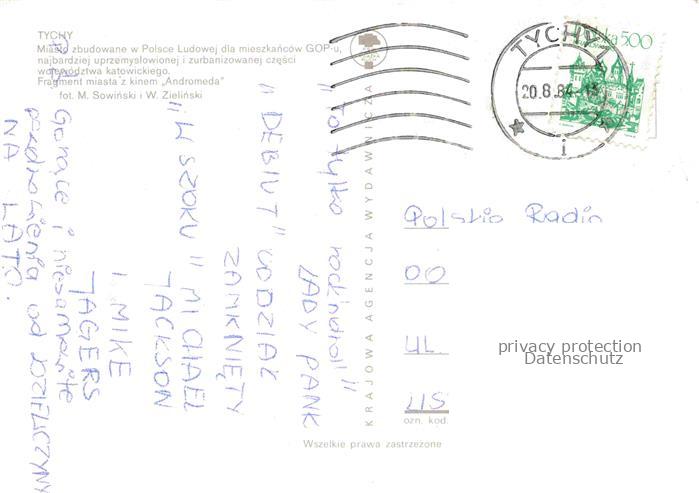 TYCHY
Miasto zbudowane w Polsce Ludowej dla mieszkańców GOP-u,
najbardziej uprzemysłowionej i zurbanizowanej części
województwa katowickiego.
Fragment miasta z kinem „Andromeda"
fot. M. Sowiński i W. Zieliński
" to tylko rock'n'roll "
LADY PANK
" DEBIUT " ODDZIAŁ
ZAMKNIĘTY
" W SZOKU " MICHAEL
JACKSON
I MIKE
JAGERS
Gorące i niesamowite
pozdrowienia od DZIEWCZYNY
NA LATO.
KRAJOWA AGENCJA WYDAWNICZA
TYCHY 1
20.8.84
i
500
Polskie Radio
00
UL.
US
ozn. kod.
Wszelkie prawa zastrzeżone
privacy protection
Datenschutz